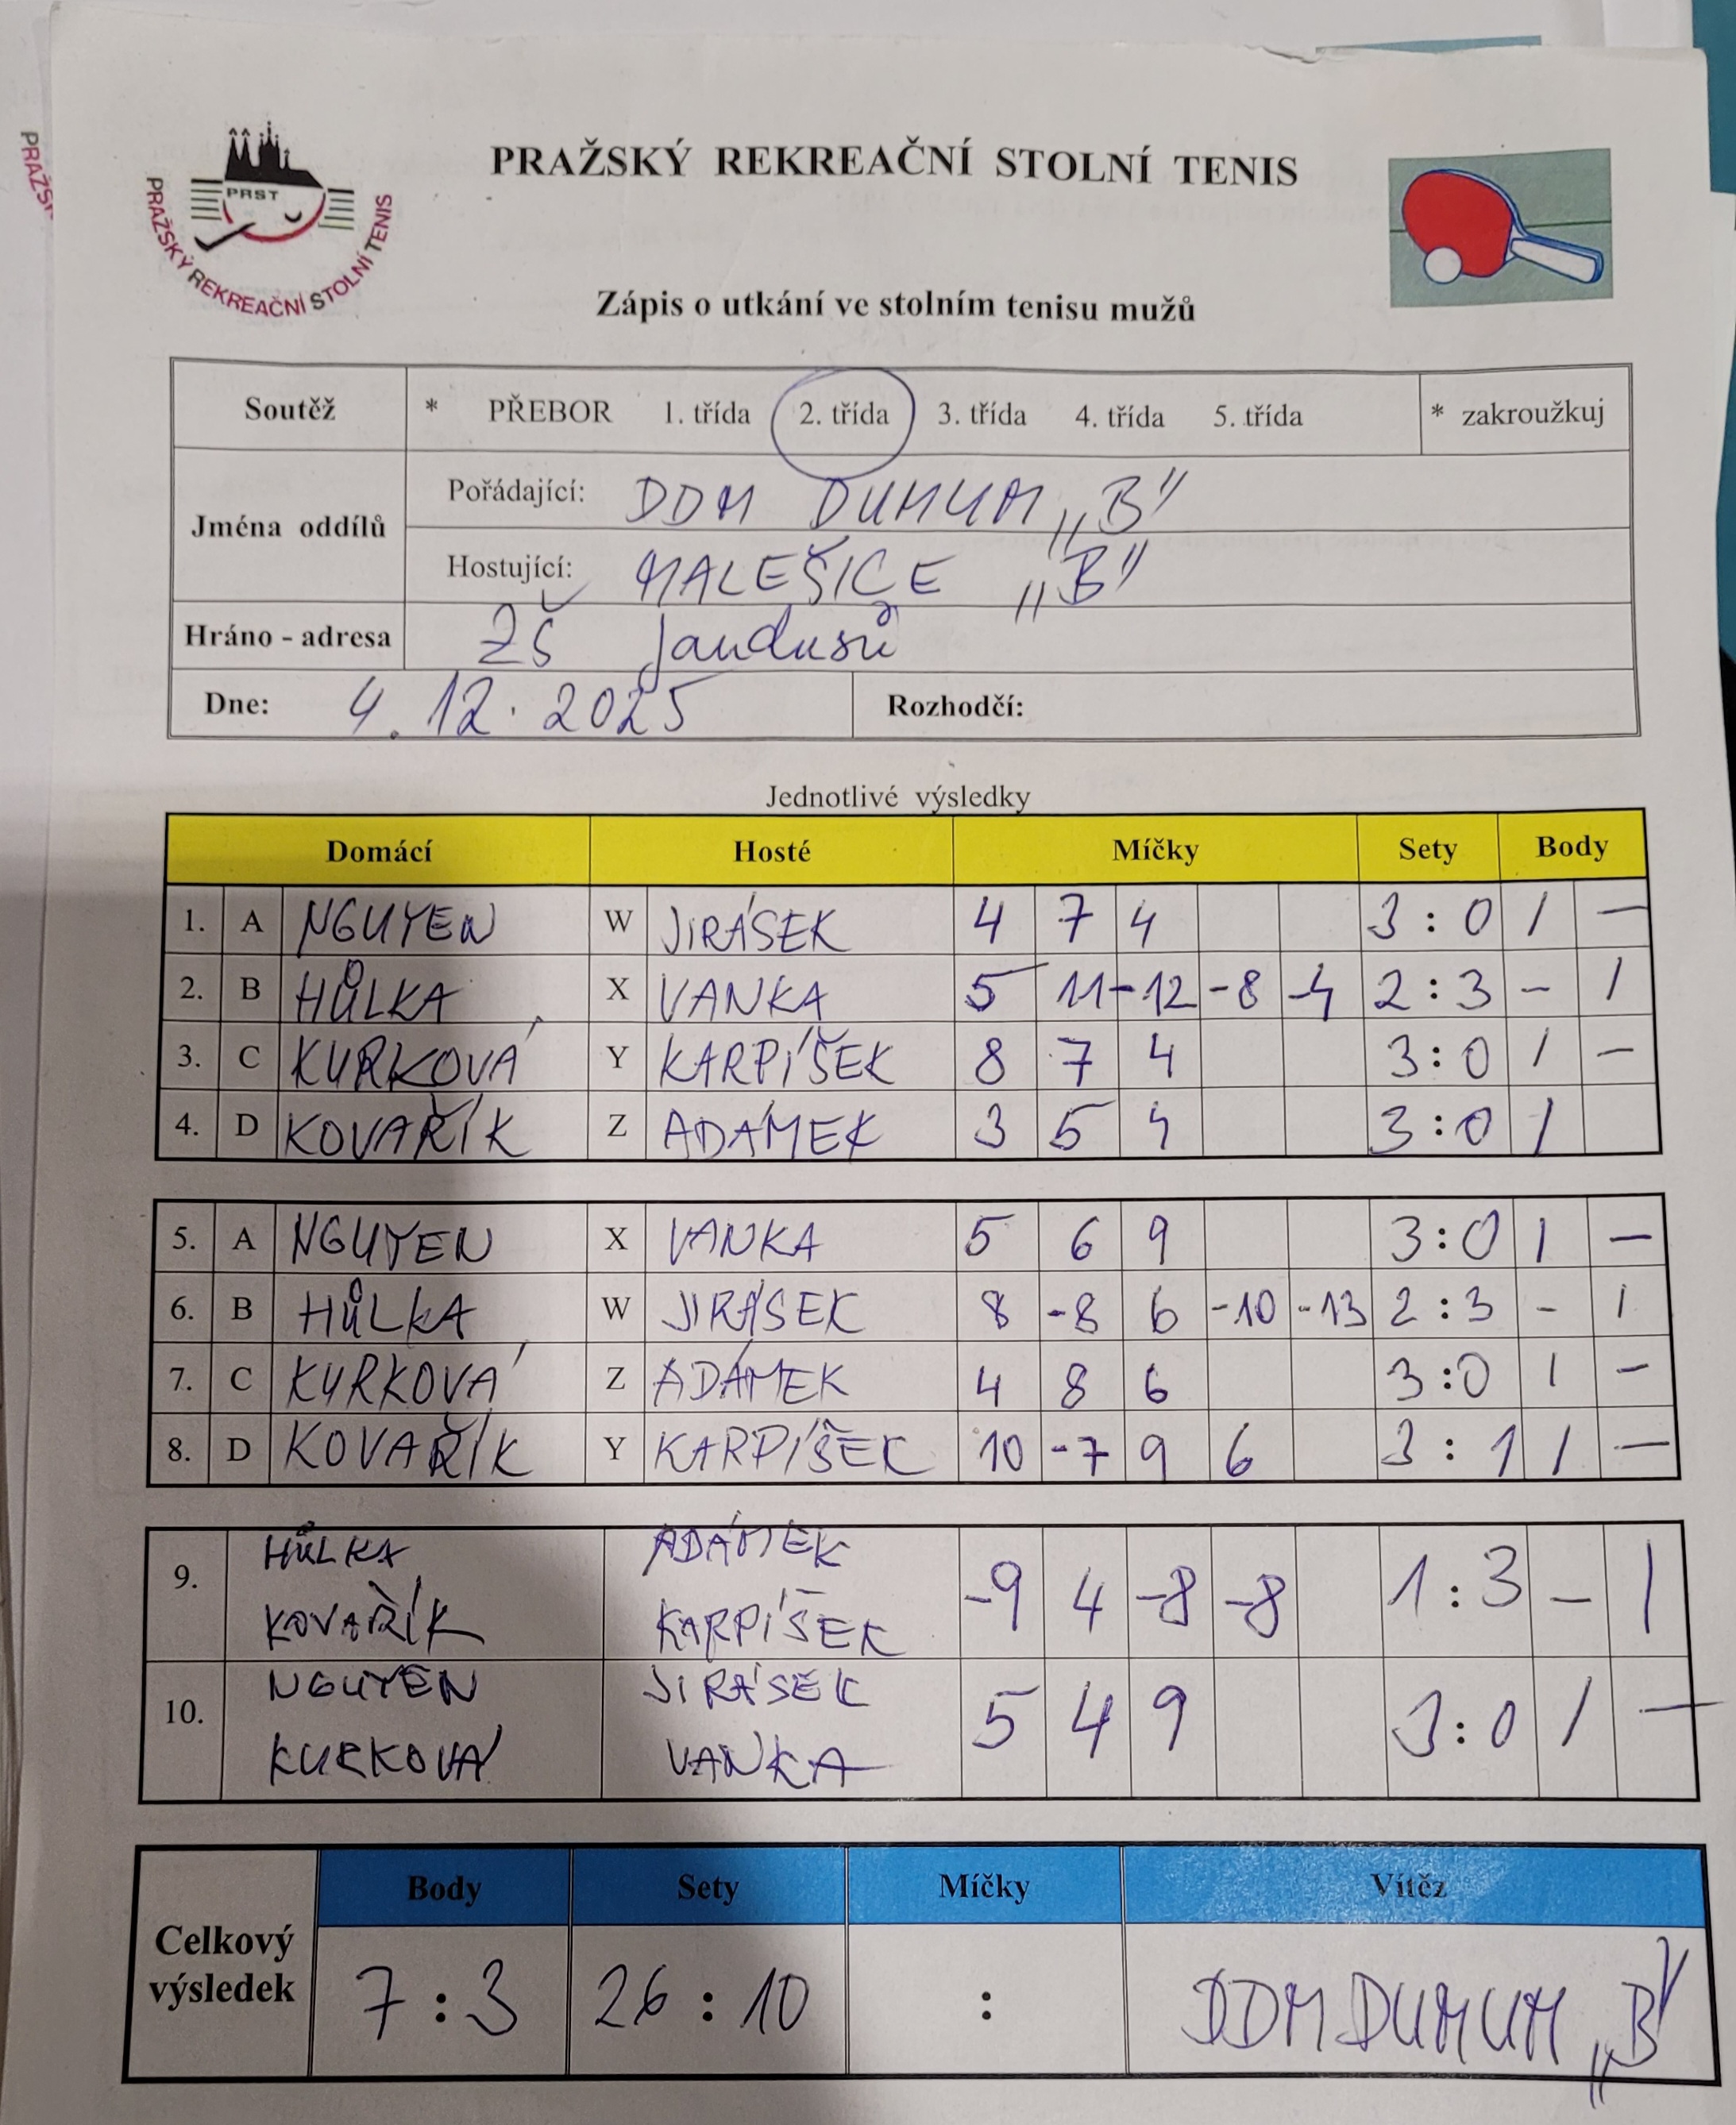 PRAŽSKÝ REKREAČNÍ STOLNÍ TENIS
PRST
PRAŽSKÝ REKREAČNÍ STOLNÍ TENIS
Zápis o utkání ve stolním tenisu mužů
Soutěž * PŘEBOR 1. třída 2. třída 3. třída 4. třída 5. třída * zakroužkuj
Jména oddílů
Pořádající: DDM DUMUM „B"
Hostující: MALEŠICE „B"
Hráno - adresa ZŠ Jandusů
Dne: 4. 12. 2025 Rozhodčí:
Jednotlivé výsledky
Domácí Hosté Míčky Sety Body
1. A NGUYEN W JIRÁSEK 4 7 4 3 : 0 1 –
2. B HŮLKA X VANKA 5 11 -12 -8 -4 2 : 3 – 1
3. C KURKOVÁ Y KARPÍŠEK 8 7 4 3 : 0 1 –
4. D KOVAŘÍK Z ADÁMEK 3 5 4 3 : 0 1
5. A NGUYEN X VANKA 5 6 9 3 : 0 1 –
6. B HŮLKA W JIRÁSEK 8 -8 6 -10 -13 2 : 3 – 1
7. C KURKOVÁ Z ADÁMEK 4 8 6 3 : 0 1 –
8. D KOVAŘÍK Y KARPÍŠEK 10 -7 9 6 3 : 1 1 –
HŮLKA ADÁMEK
9. -9 4 -8 -8 1 : 3 – 1
KOVAŘÍK KARPÍŠEK
NGUYEN JIRÁSEK
10. 5 4 9 3 : 0 1 –
KURKOVÁ VANKA
Body Sety Míčky Vítěz
Celkový výsledek 7 : 3 26 : 10 : DDM DUMUM „B"